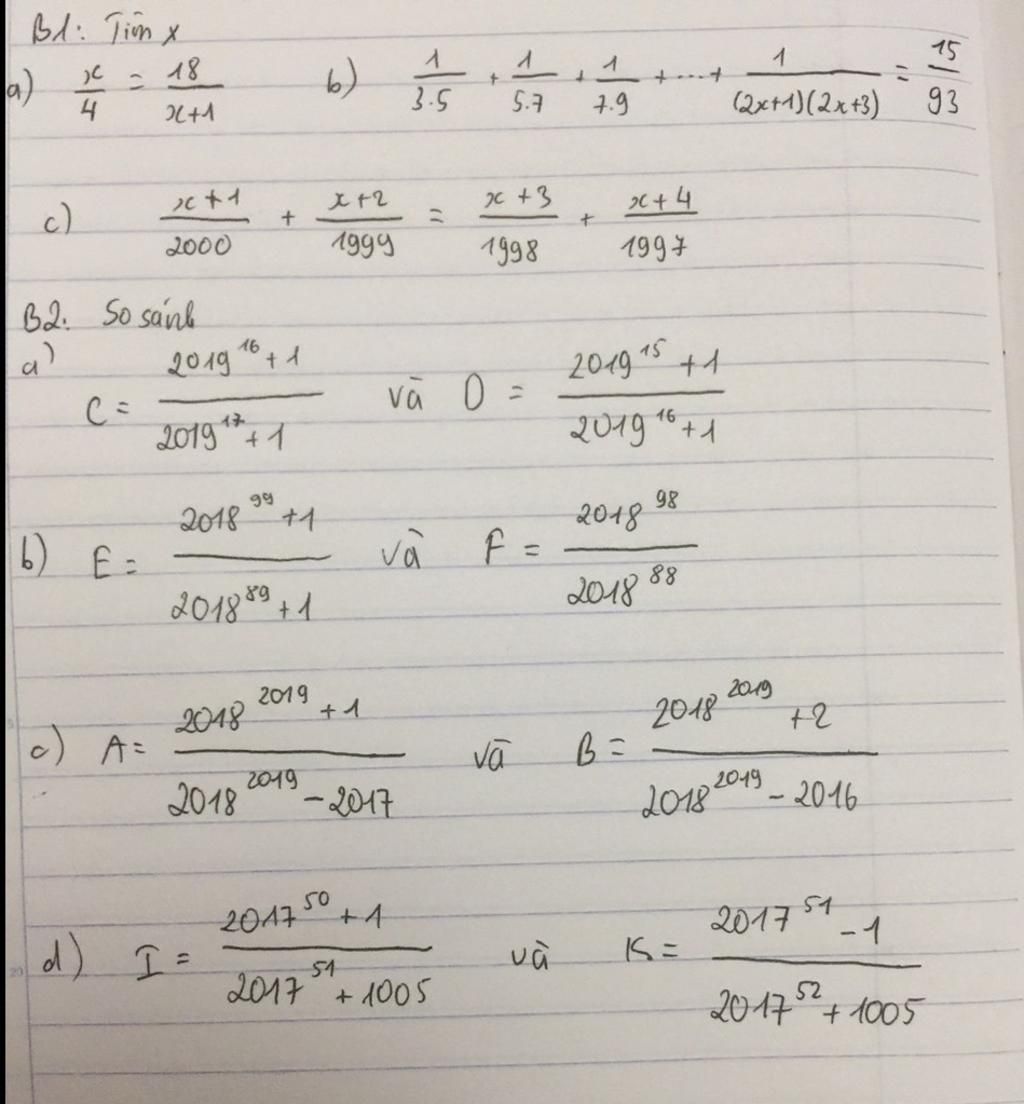 B1: Tìm x
a) x/4 = 18/(x+1) b) 1/(3.5) + 1/(5.7) + 1/(7.9) + ... + 1/((2x+1)(2x+3)) = 15/93
c) (x+1)/2000 + (x+2)/1999 = (x+3)/1998 + (x+4)/1997
B2: So sánh
a) C = (2019^16 + 1)/(2019^17 + 1) và D = (2019^15 + 1)/(2019^16 + 1)
b) E = (2018^99 + 1)/(2018^89 + 1) và F = 2018^98/2018^88
c) A = (2018^2019 + 1)/(2018^2019 - 2017) và B = (2018^2019 + 2)/(2018^2019 - 2016)
d) I = (2017^50 + 1)/(2017^51 + 1005) và K = (2017^51 - 1)/(2017^52 + 1005)